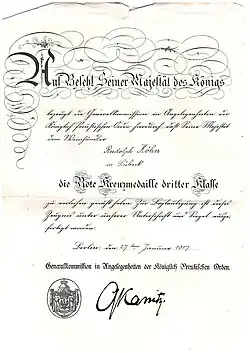 Auf Befehl Seiner Majestät des Königs
bezeugt die Generalkommission in Angelegenheiten der
Königlich Preußischen Orden hierdurch, daß Seine Majestät
dem Weinhändler
Rudolph Köhn
in Lübeck
die Rote Kreuzmedaille dritter Klasse
zu verleihen geruht haben. Zur Beglaubigung ist dieses
Zeugnis unter unserer Unterschrift und Siegel ausge-
fertigt worden.
Berlin, den 27ten Januar 1917.
Generalkommission in Angelegenheiten der Königlich Preußischen Orden.